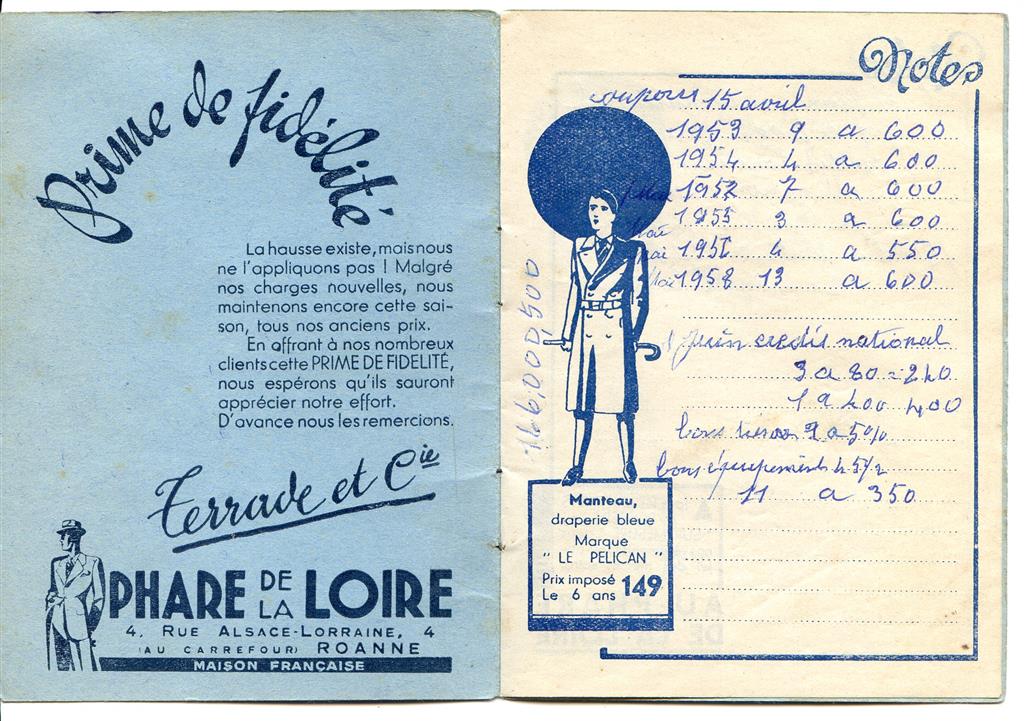 Prime de fidélité
La hausse existe, mais nous
ne l'appliquons pas ! Malgré
nos charges nouvelles, nous
maintenons encore cette sai-
son, tous nos anciens prix.
En offrant à nos nombreux
clients cette PRIME DE FIDELITÉ,
nous espérons qu'ils sauront
apprécier notre effort.
D'avance nous les remercions.
Terrade et Cie
PHARE DE LA LOIRE
4, RUE ALSACE-LORRAINE, 4
(AU CARREFOUR) ROANNE
MAISON FRANÇAISE
Notes
coupons 15 avril
1953 9 a 600
1954 4 a 600
1952 7 a 600
3 a 600
mai 4 a 550
1958 13 a 600
juin credit national
3 a 80 = 240
1 a 400 400
bons 9 a 5%
bons équipements 4 5/2
11 a 350
166,000,500
Manteau,
draperie bleue
Marque
" LE PELICAN "
Prix imposé 149
Le 6 ans